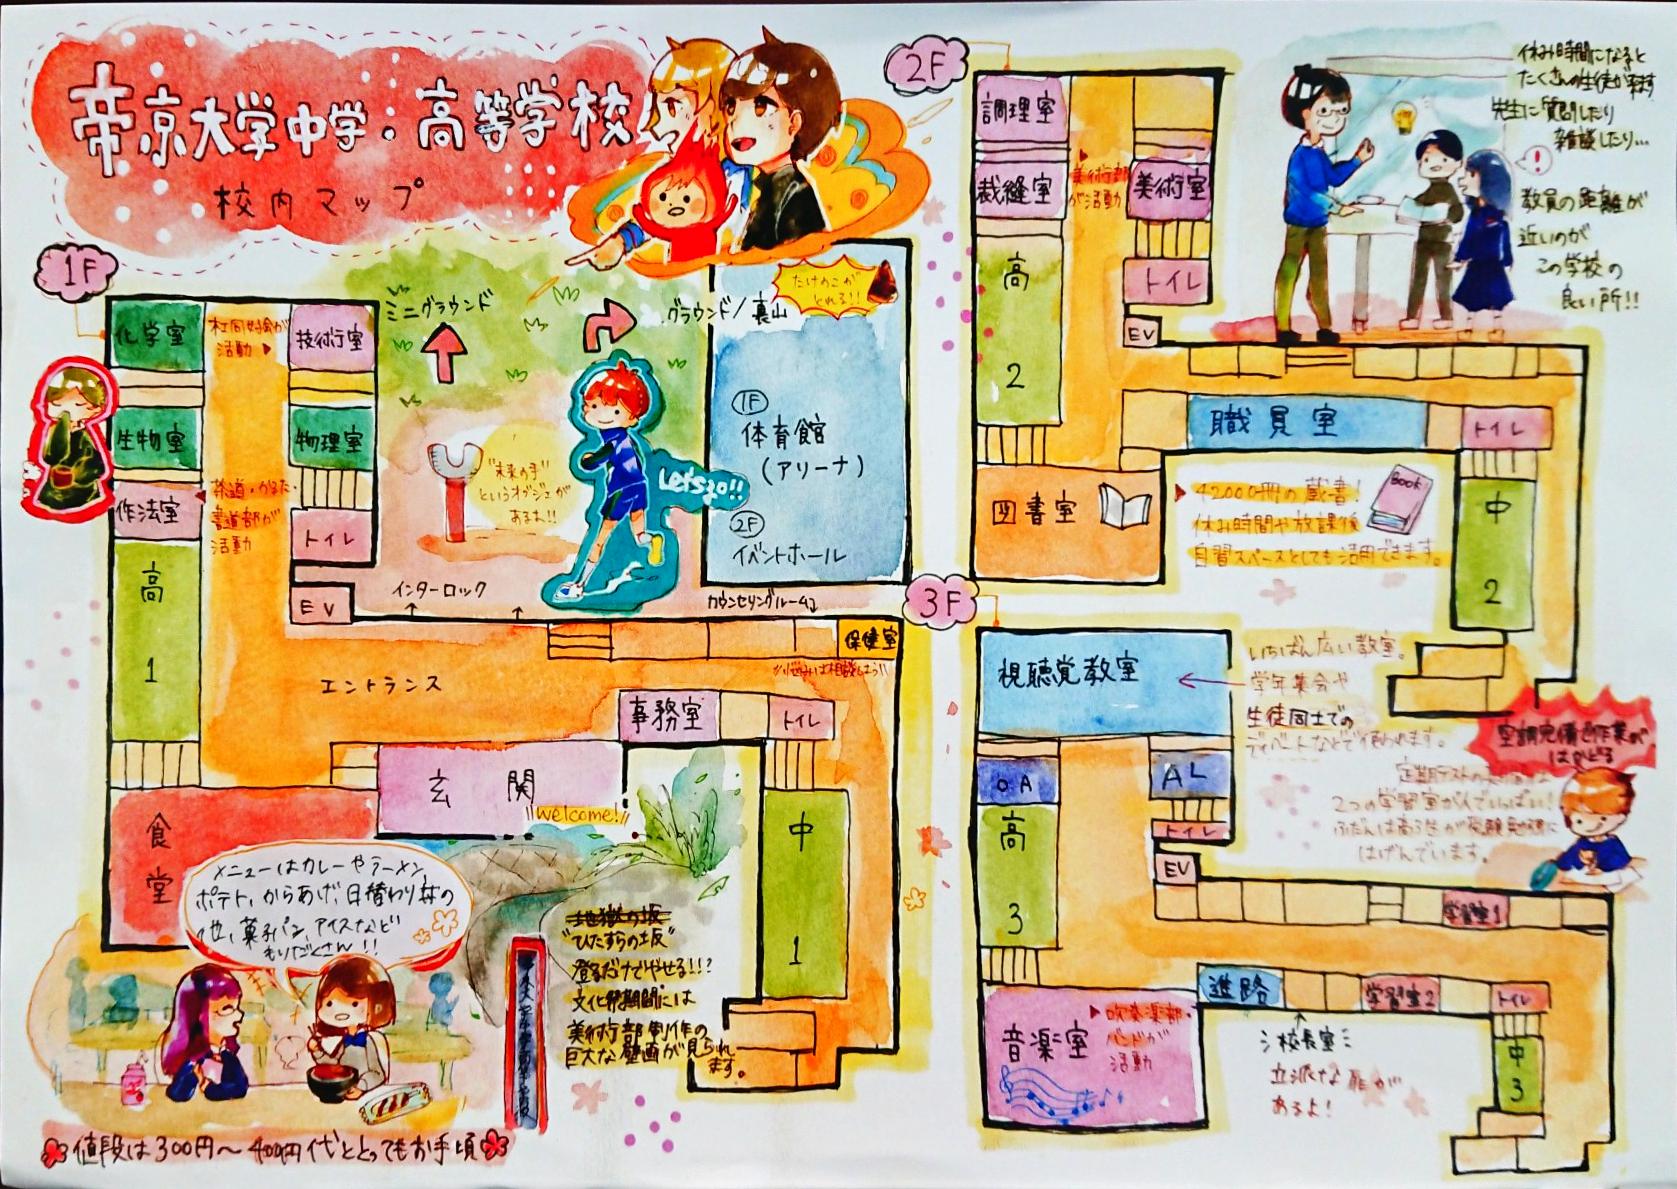 帝京大学中学・高等学校
校内マップ
1F
化学室
社同好会が
活動
技術室
生物室
物理室
作法室
茶道・かるた・
書道部が
活動
トイレ
高
1
EV
ミニグラウンド
グラウンド/裏山
たけのこが
とれる!!
"未来の手"
というオブジェが
あるよ!!
Let's go!!
1F
体育館
(アリーナ)
2F
イベントホール
インターロック
カウンセリングルーム
保健室
悩みは相談しよう
エントランス
事務室
トイレ
玄関
welcome!
食堂
メニューはカレーやラーメン、
ポテト、からあげ、日替わり丼の
他、菓子パン、アイスなど
もりだくさん!!
値段は300円〜400円代ととってもお手頃
地獄の坂
"ひたすらの坂"
登るだけでやせる!!?
文化祭期間には
美術部制作の
巨大な壁画が見られ
ます。
中
1
2F
調理室
裁縫室
美術部
が活動
美術室
高
2
トイレ
EV
図書室
職員室
トイレ
42000冊の蔵書!
休み時間や放課後
自習スペースとしても活用できます。
Book
中
2
休み時間になると
たくさんの生徒が来ます
先生に質問したり
雑談したり…
教員の距離が
近いのが
この学校の
良い所!!
3F
視聴覚教室
いちばん広い教室。
学年集会や
生徒同士での
ディベートなどで使われます。
OA
AL
高
3
トイレ
EV
空調完備で作業が
はかどる
定期テストの
2つの学習室がいっぱい!
ふだんは高3生が受験勉強に
はげんでいます。
学習室1
進路
学習室2
トイレ
音楽室
吹奏楽部・
バンドが
活動
校長室
立派な扉が
あるよ!
中
3